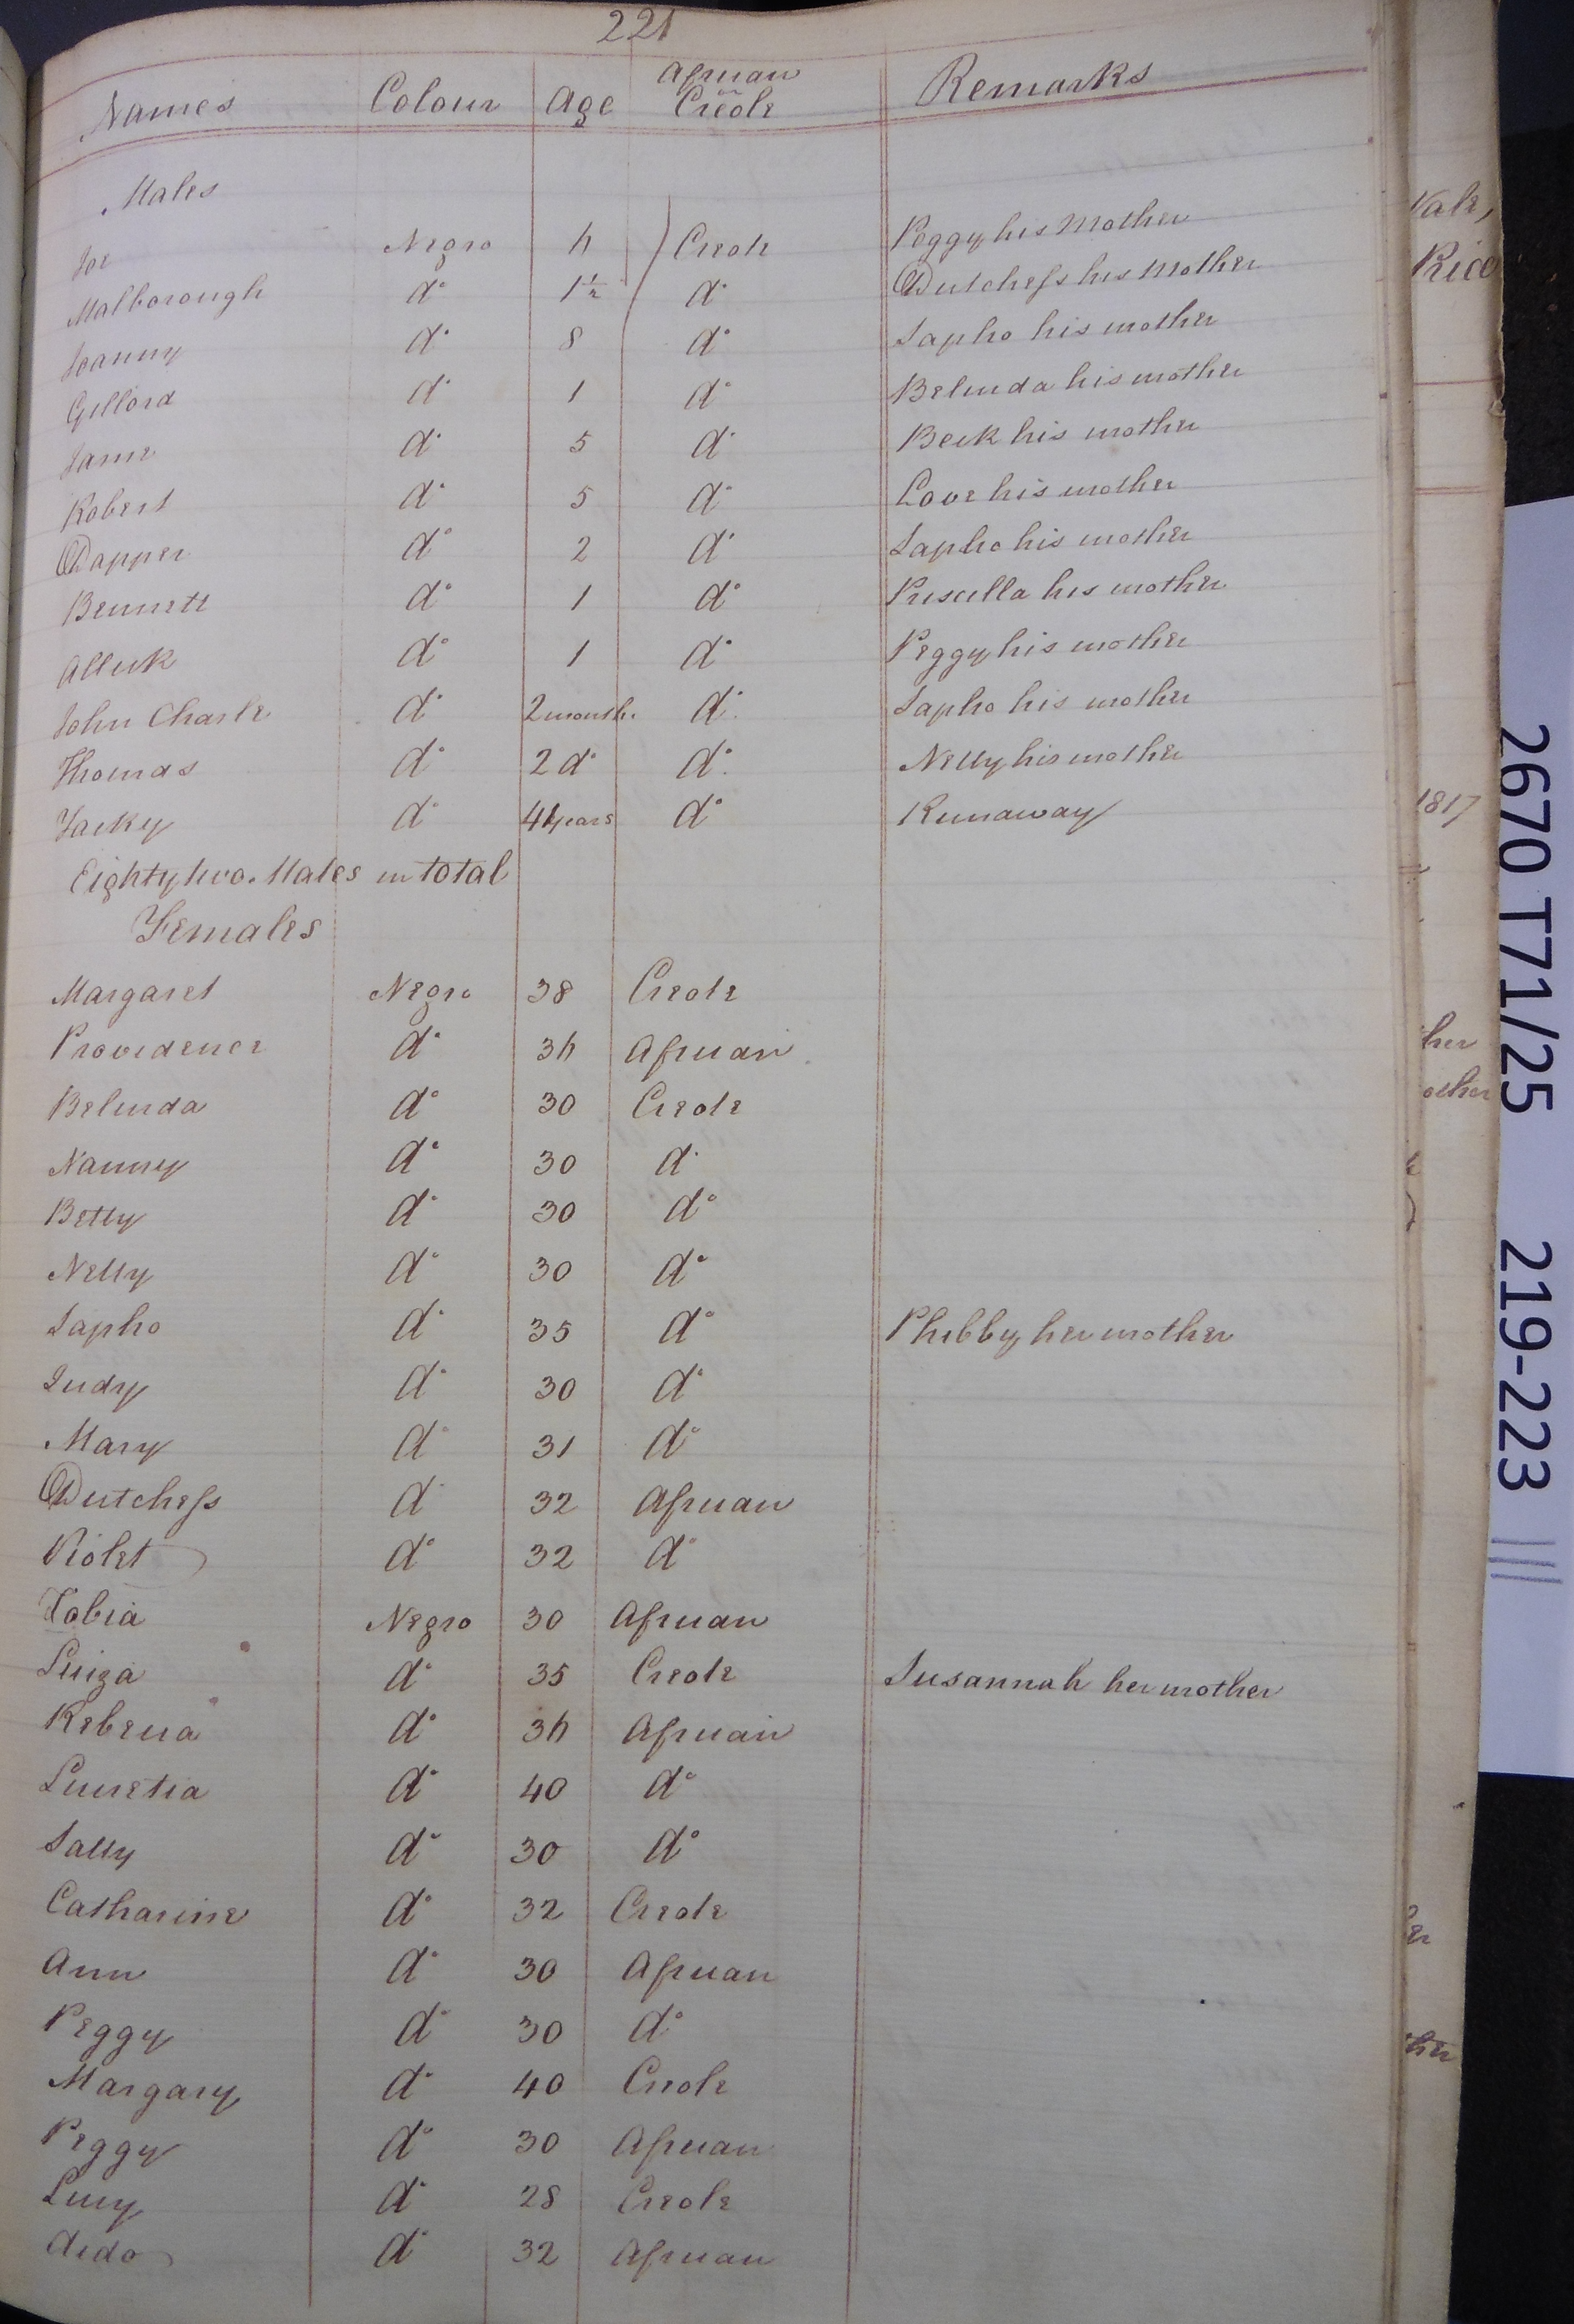 221
Names Colour Age African or Creole Remarks
Males
Joe Negro 4 Creole Peggy his Mother
Malborough do 1½ do Dutchess his Mother
Joanny do 8 do Sapho his mother
Gillord do 1 do Belinda his mother
Jame do 5 do Beck his mother
Robert do 5 do Love his mother
Dapper do 2 do Sapho his mother
Bennett do 1 do Priscilla his mother
Allick do 1 do Peggy his mother
John Charle do 2 months do Sapho his mother
Thomas do 2 do do Nelly his mother
Jacky do years do Runaway
Eighty two Males in total
Females
Margaret Negro 38 Creole
Providence do 34 African
Belinda do 30 Creole
Nanny do 30 do
Betty do 30 do
Nelly do 30 do
Sapho do 35 do Phibby her mother
Judy do 30 do
Mary do 31 do
Dutchess do 32 African
Violet do 32 do
Negro 30 African
Luiza do 35 Creole Susannah her mother
Rebecca do 34 African
Lucretia do 40 do
Sally do 30 do
Catharine do 32 Creole
Ann do 30 African
Peggy do 30 do
Margary do 40 Creole
Peggy do 30 African
Lucy do 28 Creole
dido do 32 African
Vale,
Rice
1817
her
other
2670 T71/25 219-223